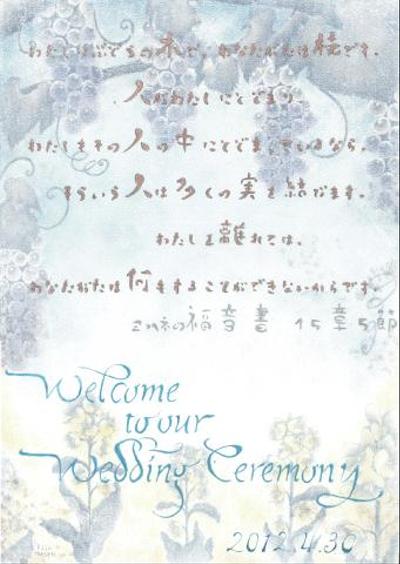 わたしはぶどうの木で、あなたがたは枝です。
人がわたしにとどまり、
わたしもその人の中にとどまっているなら、
そういう人は多くの実を結びます。
わたしを離れては、
あなたがたは何をすることもできないからです。
ヨハネの福音書 15章5節
Welcome
to our
Wedding Ceremony
2012.4.30